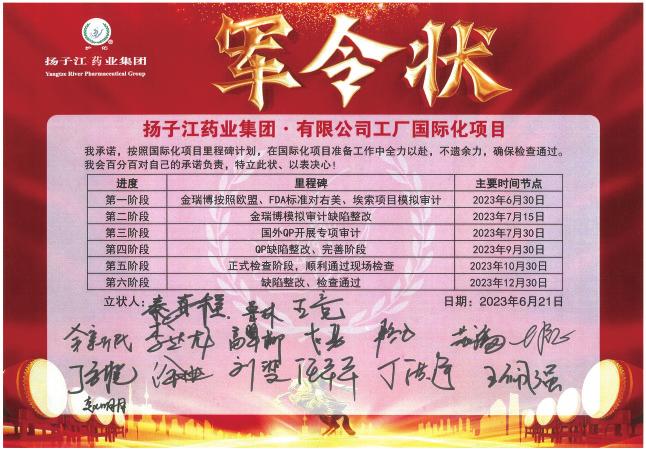 护佑
®
扬子江药业集团
Yangtze River Pharmaceutical Group
军令状
扬子江药业集团·有限公司工厂国际化项目
我承诺，按照国际化项目里程碑计划，在国际化项目准备工作中全力以赴，不遗余力，确保检查通过。
我会百分百对自己的承诺负责，特立此状、以表决心！
进度 里程碑 主要时间节点
第一阶段 金瑞博按照欧盟、FDA标准对右美、埃索项目模拟审计 2023年6月30日
第二阶段 金瑞博模拟审计缺陷整改 2023年7月15日
第三阶段 国外QP开展专项审计 2023年7月30日
第四阶段 QP缺陷整改、完善阶段 2023年9月30日
第五阶段 正式检查阶段，顺利通过现场检查 2023年10月30日
第六阶段 缺陷整改、检查通过 2023年12月30日
立状人： 日期：2023年6月21日